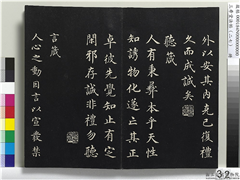 外以安其內克己復禮
久而誠矣
聽箴
人有秉彝本乎天性
知誘物化遂亡其正
卓彼先覺知止有定
閑邪存誠非禮勿聽
言箴
人心之動因言以宣發禁
32